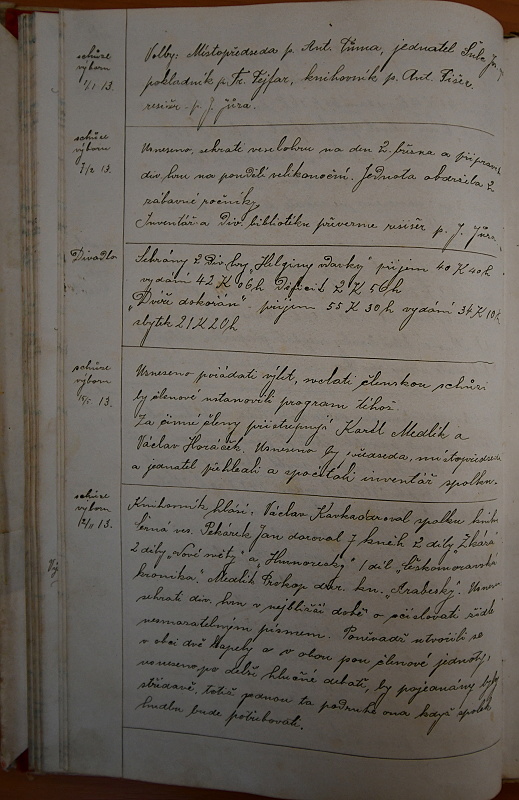 schůze
výboru
1/1 13.
Volby: Místopředseda p. Ant. Tůma, jednatel
pokladník p. Fr. Fejfar, knihovník p. Ant. Fišer.
resišér p. J. Jůra.
schůze
výboru
7/2 13.
Usneseno, sehrati veselohru na den 2. března a připravit
div. hru na pondělí velikonoční. Jednota obdržela 2
zábavné ročníky.
Inventář a Div. bibliotéku převezme resišér p. J. Jůra.
Divadlo
Sehrány 2 Div. hry „Helginy vdavky" příjem 40 K 40 h
vydání 42 K 96 h Deficit 2 K 56 h
„Dvéře dokořán" - příjem 55 K 30 h vydání 34 K 10 h
zbytek 21 K 20 h
schůze
výboru
13.
Usneseno pořádati výlet, svolati členskou schůzi
by členové ustanovili program téhož.
Za činné členy přistupují Karel Medlík a
Václav Horáček. Usneseno by předseda, místopředseda
a jednatel přehledli a spočítali inventář spolku.
schůze
výboru
12/11 13.
Knihovník hlásí: Václav Kavka daroval spolku knihu
ves. Pekárek Jan daroval 7 kněh 2 díly
2 díly „Nové světy" a 1 díl „Českomoravská
kronika". Medlík Prokop dar. kn. „Arabesky". Usneseno
sehrati div. hru v nejbližší době a očíslovati židle
nesmazatelným písmem. Poněvadž utvořili se
v obci dvě kapely a v obou jsou členové jednoty,
usneseno po delší hlučné debatě, by pojednány byly
střídavě, totiž jednou ta podruhé ona když spolek
hudbu bude potřebovati.